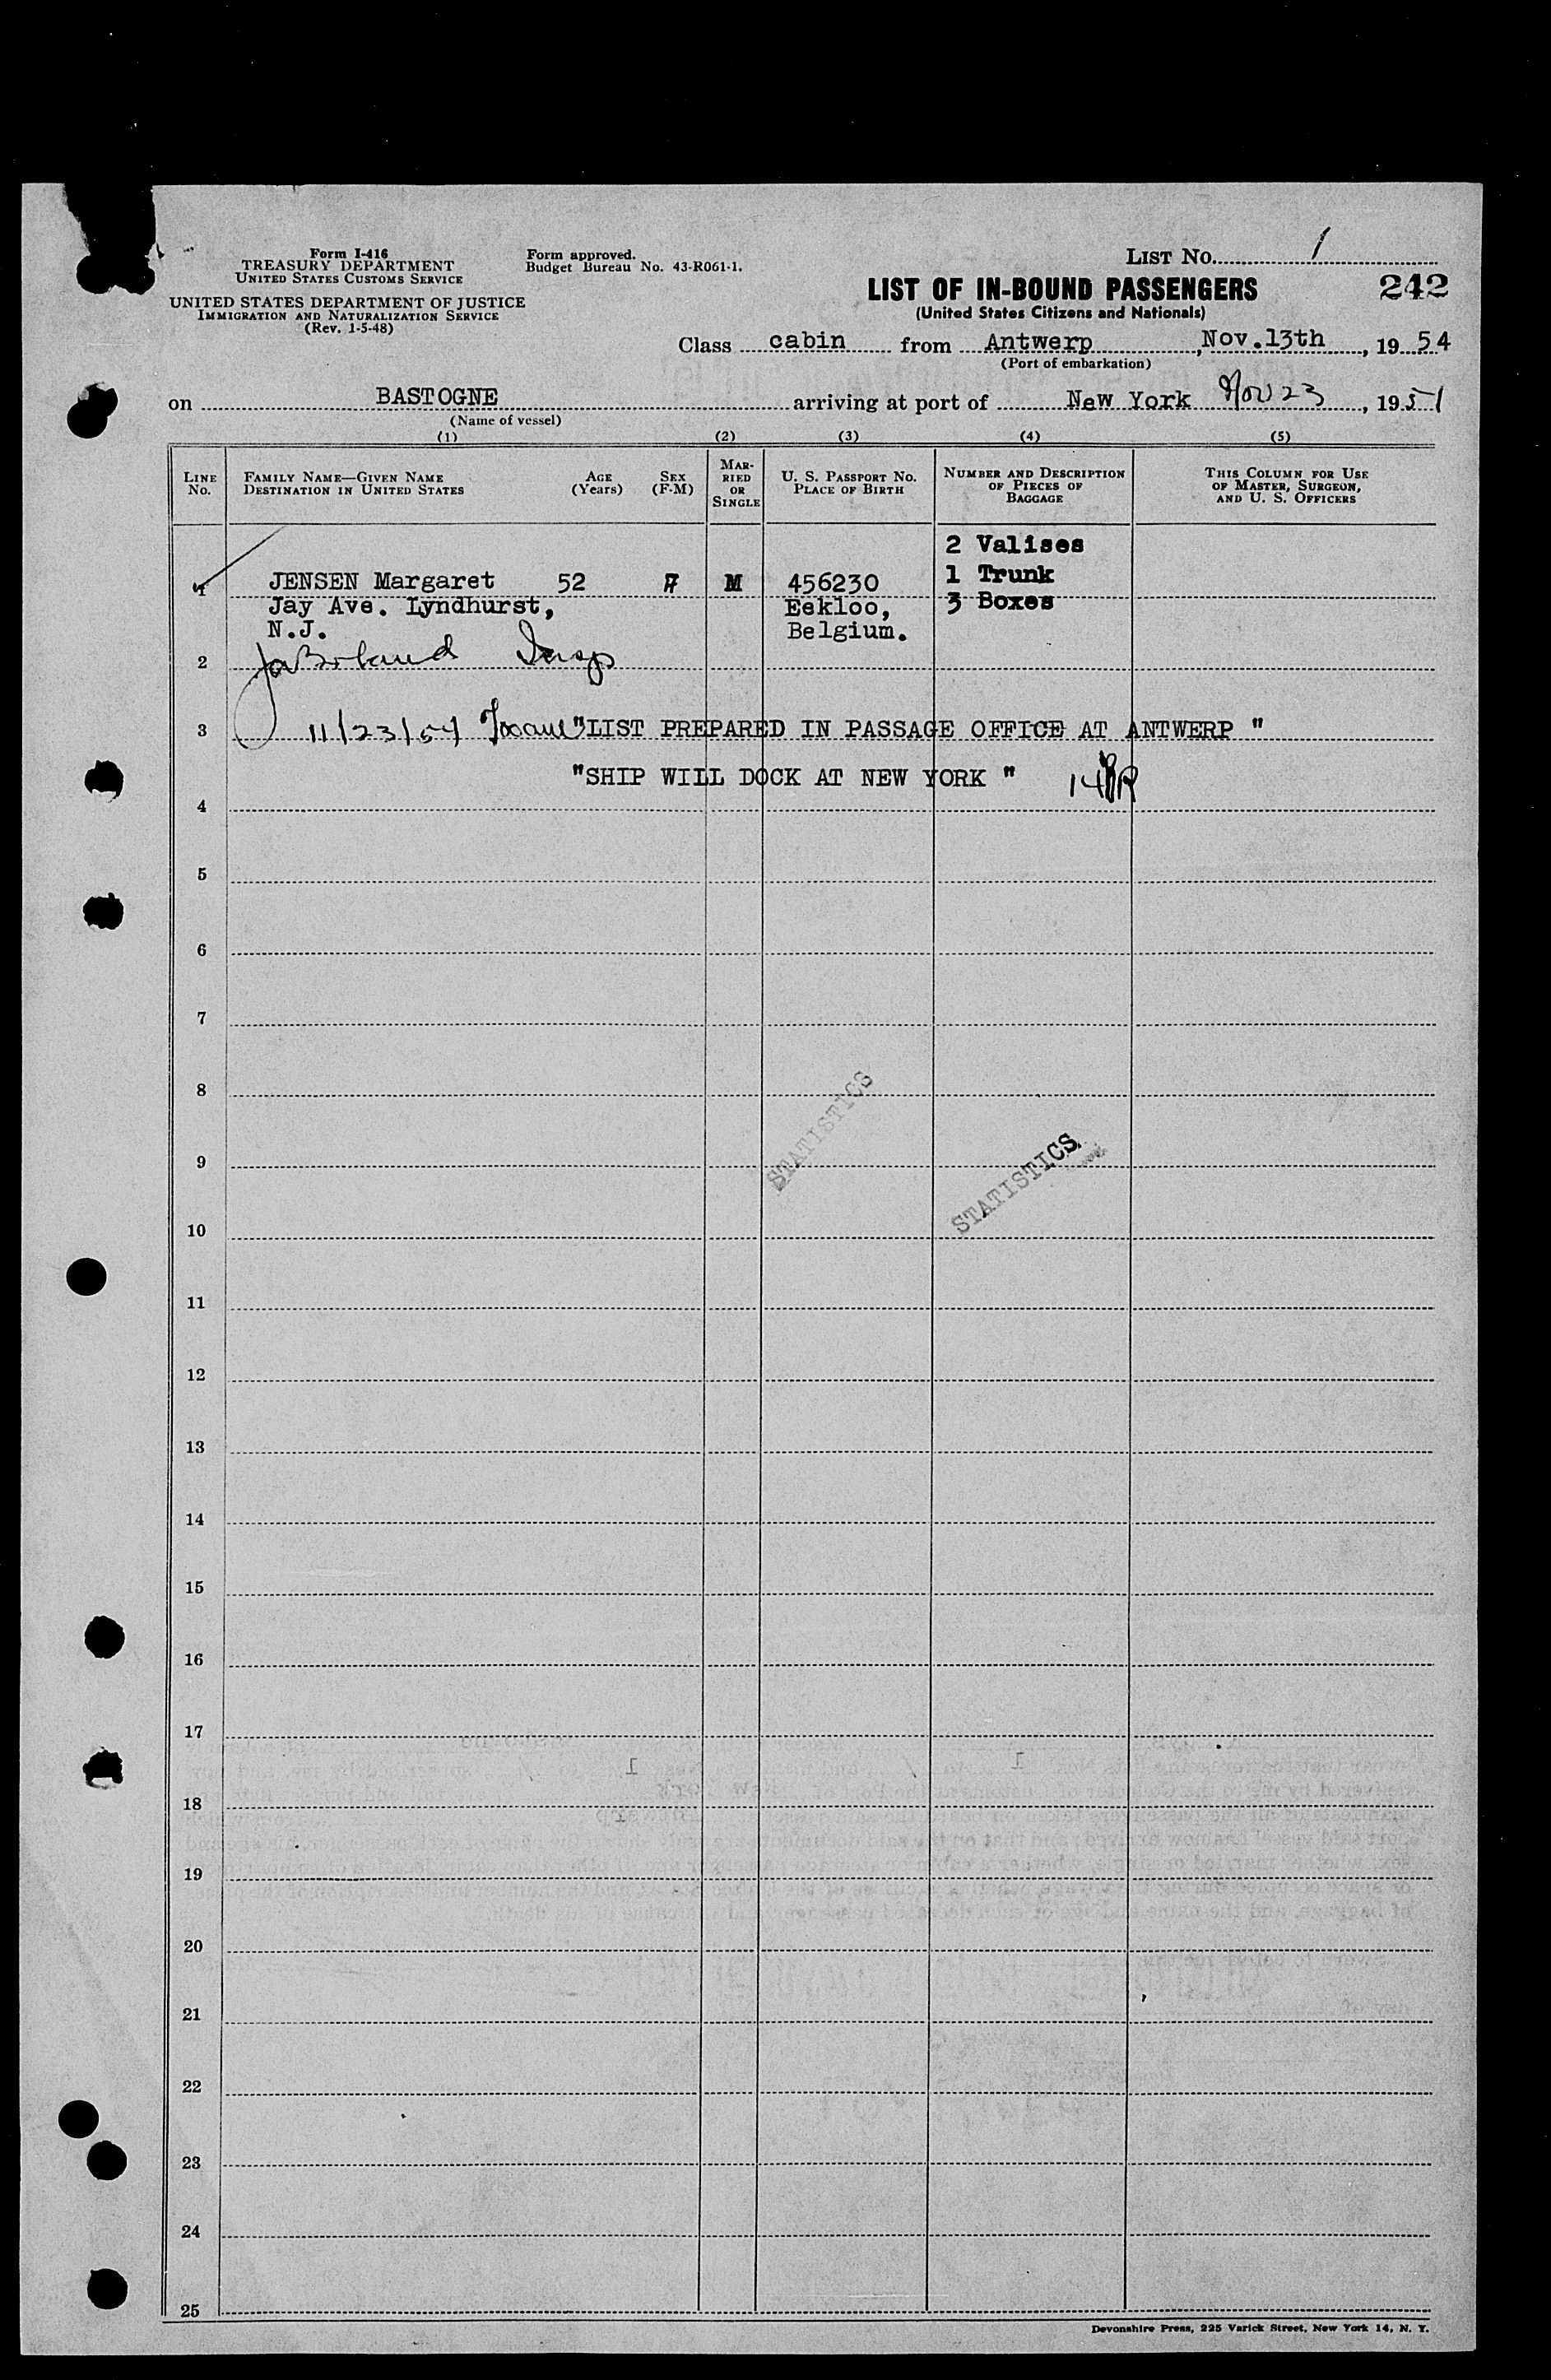 Form I-416
TREASURY DEPARTMENT
UNITED STATES CUSTOMS SERVICE
UNITED STATES DEPARTMENT OF JUSTICE
IMMIGRATION AND NATURALIZATION SERVICE
(Rev. 1-5-48)
Form approved.
Budget Bureau No. 43-R061-1.
LIST NO. 1
LIST OF IN-BOUND PASSENGERS 242
(United States Citizens and Nationals)
Class cabin from Antwerp, Nov.13th, 1954
(Port of embarkation)
on BASTOGNE arriving at port of New York Nov 23, 1954
(Name of vessel)
(1) (2) (3) (4) (5)
LINE NO.
FAMILY NAME—GIVEN NAME
DESTINATION IN UNITED STATES
AGE (Years)
SEX (F-M)
MARRIED OR SINGLE
U. S. PASSPORT NO.
PLACE OF BIRTH
NUMBER AND DESCRIPTION
OF PIECES OF
BAGGAGE
THIS COLUMN FOR USE
OF MASTER, SURGEON,
AND U. S. OFFICERS
2 Valises
1 JENSEN Margaret 52 F M 456230 1 Trunk
Jay Ave. Lyndhurst, Eekloo, 3 Boxes
N.J. Belgium.
2 Insp
3 11/23/54 "LIST PREPARED IN PASSAGE OFFICE AT ANTWERP "
"SHIP WILL DOCK AT NEW YORK "
4
5
6
7
8
STATISTICS
9
STATISTICS
10
11
12
13
14
15
16
17
18
19
20
21
22
23
24
25
Devonshire Press, 225 Varick Street, New York 14, N. Y.